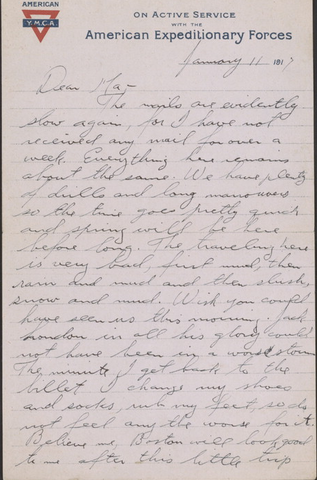 AMERICAN
Y.M.C.A.
ON ACTIVE SERVICE
WITH THE
American Expeditionary Forces
January 11 1917
Dear May-
The mails are evidently
slow again, for I have not
received any mail for over a
week. Everything here remains
about the same. We have plenty
of drills and long manouvers
so the time goes pretty quick
and spring will be here
before long. The traveling here
is very bad, first mud, then
rain and mud and then slush,
snow and mud. Wish you could
have seen us this morning. Jack
London in all his glory could
not have been in a worse storm
The minute I get back to the
billet I change my shoes
and socks, rub my feet, so do
not feel any the worse for it.
Believe me, Boston will look good
to me after this little trip